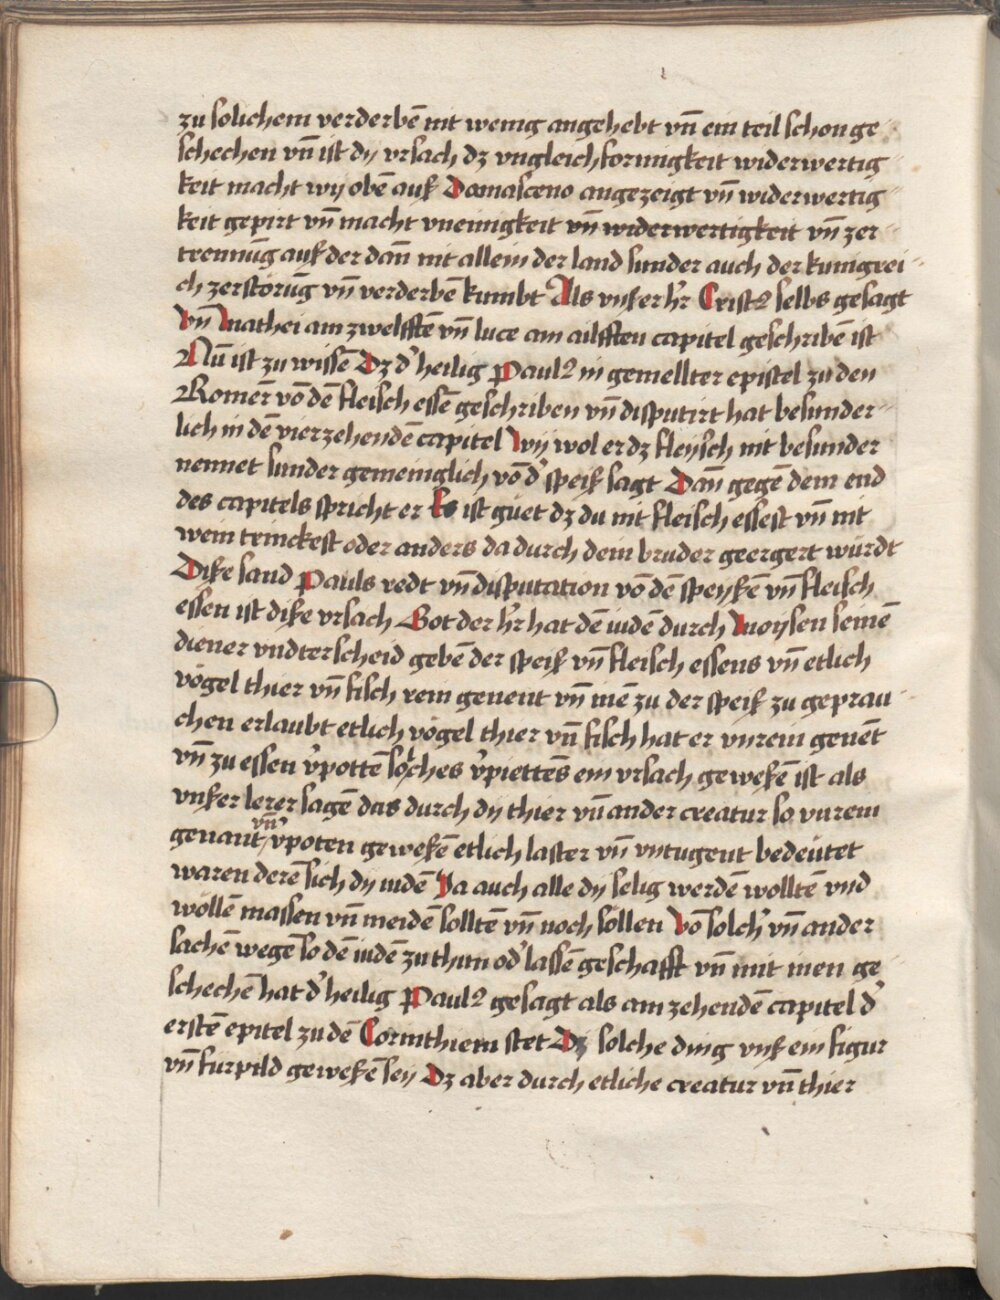 zu solichem verderbē nit wenig angehebt vn̄ ein teil schon ge
schechen vn̄ ist dy vrsach dz vngleichformigkeit widerwertig
keit macht wy obē auß Damasceno angezeigt vn̄ widerwertig
keit gepirt vn̄ macht vneinigkeit vn̄ widerwertigkeit vn̄ zer
trennūg auß der dan̄ nit allein der land sunder auch der kunigrei
ch zerstörūg vn̄ verderbē kumbt Als vnser h'r Crist9 selbs gesagt
vn̄ Mathei am zwelfftē vn̄ luce am ailfften capitel geschribē ist
Nū ist zu wissē Dz d' heilig Paul9 in gemellter epistel zu den
Romer̄ vō dē fleisch essē geschriben vn̄ disputirt hat besunder
lich in dē vierzehendē capitel Wy wol er dz fleysch nit besunder
nennet sunder gemeiniglich vō d' speiß sagt Dan̄ gegē dem end
des capitels spricht er Es ist guet dz du nit fleisch essest vn̄ nit
wein trinckest oder anders da durch dein bruder geergert würdt
Diße sand Pauls redt vn̄ disputation vō dē speyßē vn̄ fleisch
essen ist diße vrsach Got der h'r hat dē iudē durch Moysen seinē
diener vndterscheid gebē der speiß vn̄ fleisch essens vn̄ etlich
vögel thier vn̄ fisch rein genent vn̄ inē zu der speiß zu geprau
chen erlaubt etlich vögel thier vn̄ fisch hat er vnrein genēt
vn̄ zu essen v'pottē solches v'piettēs ein vrsach geweßē ist als
vnßer lerer sagē das durch dy thier vn̄ ander creatur so vnrein
genant vn̄ v'poten geweßē etlich laster vn̄ vntugent bedeütet
waren derē sich dy iudē Ja auch alle dy selig werdē wolltē vnd
wöllē massen vn̄ meidē solltē vn̄ noch söllen Vō solch' vn̄ ander
sachē wegē so dē iudē zu thun od' lassē geschafft vn̄ mit inen ge
schechē hat d' heilig Paul9 gesagt als am zehendē capitel d'
erstē epitel zu dē Corinthiern stet Dz solche ding vnß ein figur
vn̄ furpild geweßē sey Dz aber durch etliche creatur vn̄ thier